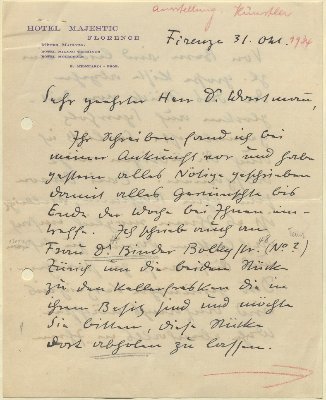 Ausstellung Künstler
HOTEL MAJESTIC
FLORENCE
Firenze 31. Okt. 1934
Sehr geehrter Herr Dr. Wartmann,
Ihr Schreiben fand ich bei
meiner Ankunft vor und habe
gestern alles Nötige geschrieben
damit alles Gewünschte bis
Ende der Woche bei Ihnen ein-
treffe. Ich schrieb auch an
Frau Dr. Binder Bolleystr. (No 2)
Zürich um die beiden Stücke
zu den Kellerfresken die in
ihrem Besitz sind und möchte
Sie bitten, diese Stücke
dort abholen zu lassen.